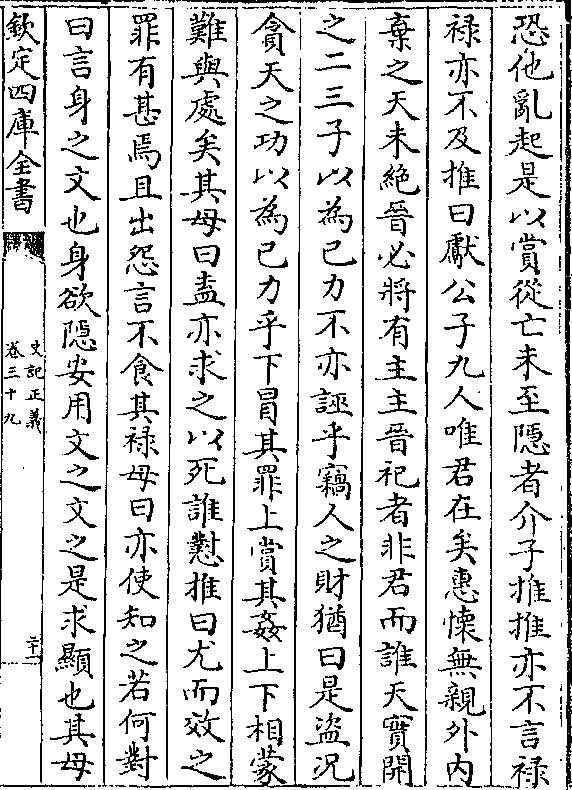 恐他亂起是以賞從亡未至隱者介子推推亦不言禄
禄亦不及推曰獻公子九人唯君在矣惠懷無親外内
棄之天未絶晉必將有主主晉祀者非君而誰天實開
之二三子以為已力不亦誣乎竊人之財猶曰是盗況
貪天之功以為已力乎下冒其罪上賞其姦上下相蒙
難與處矣其母曰盍亦求之以死誰懟推曰尤而效之
罪有甚焉且出怨言不食其禄母曰亦使知之若何對
曰言身之文也身欲隱安用文之文之是求顯也其母
欽定四庫全書
史記正義
卷三十九
二十二